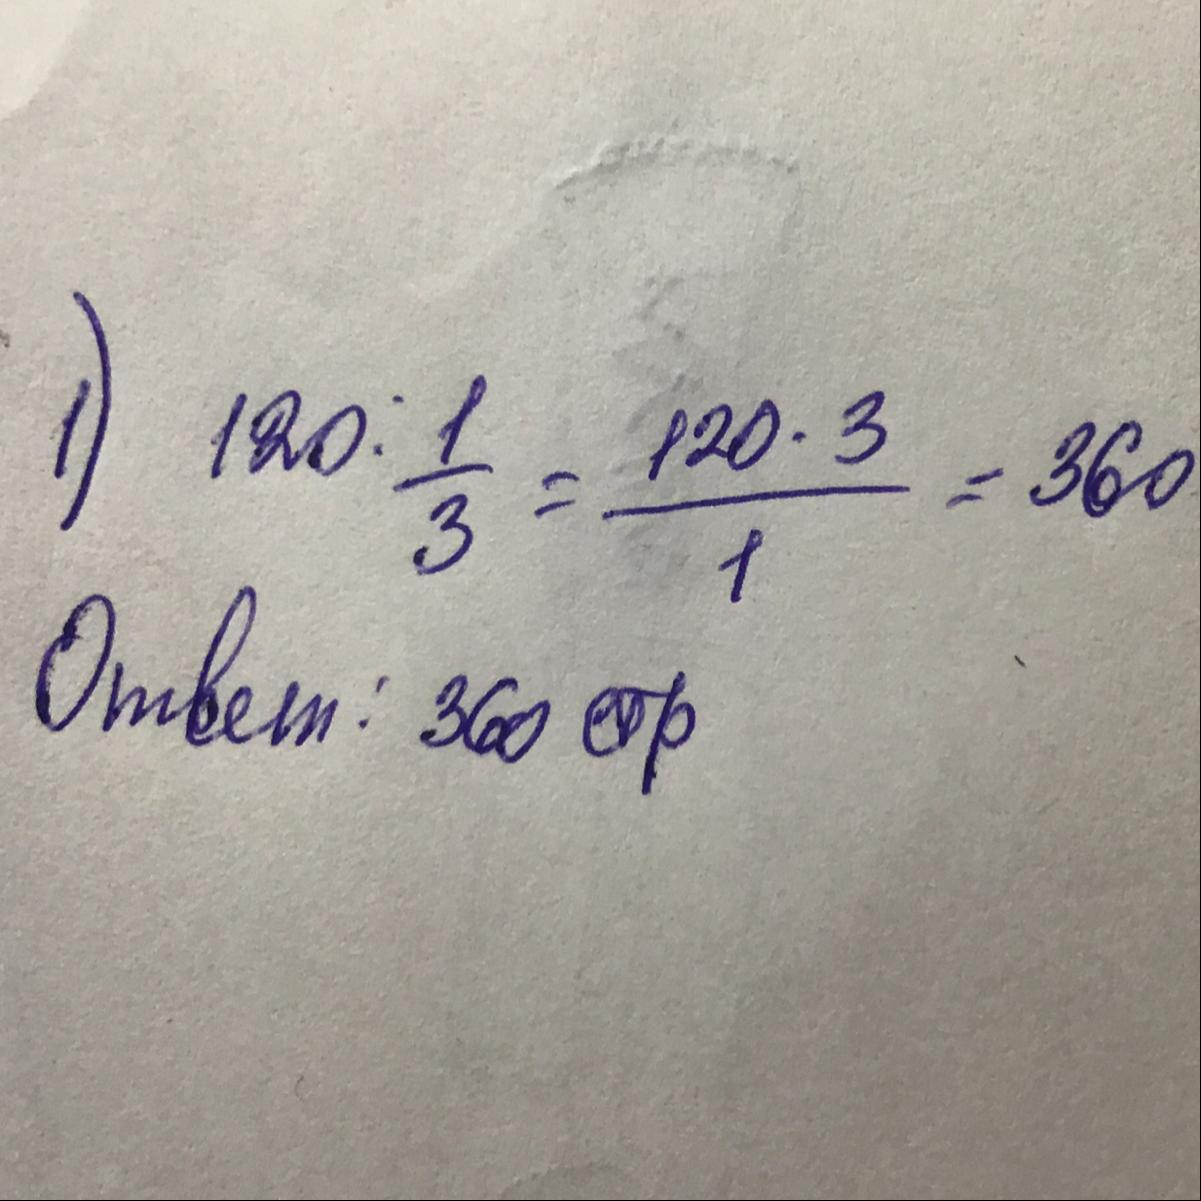 1) 120 : 1/3 = 120 · 3/1 = 360
Ответ: 360 стр